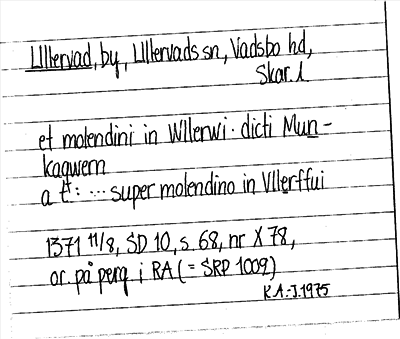 Ullervad, by, Ullervads sn, Vadsbo hd,
Skar. l
et molendini in Wllerwi · dicti Mun-
kaqwern
a t: ... super molendino in Vllerffui
1371 11/8, SD 10, s. 68, nr X 78,
or. på perg. i RA (= SRP 1009)
R.A:J. 1975